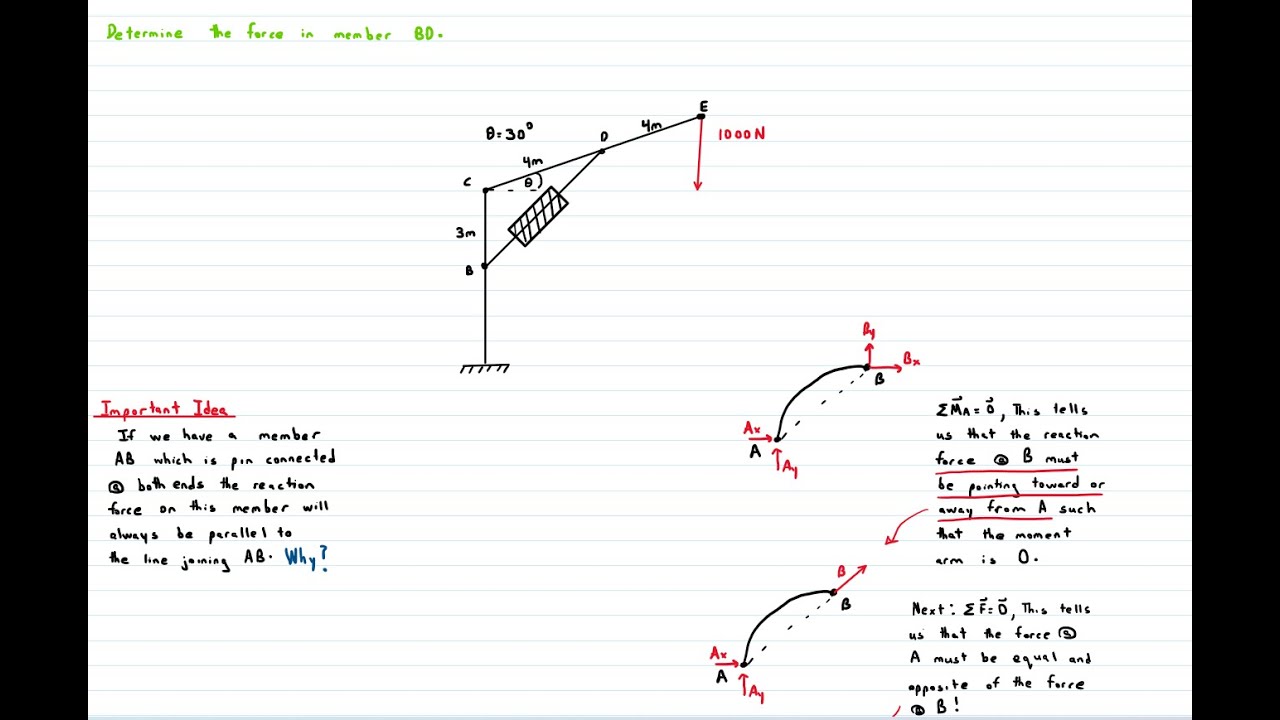 Determine the force in member BD.
E
θ=30°
D
4m
1000N
4m
C
θ
3m
B
By
Bx
B
Ax
A
Ay
Important Idea
If we have a member
AB which is pin connected
@ both ends the reaction
force on this member will
always be parallel to
the line joining AB. Why?
ΣM⃗A=0⃗, This tells
us that the reaction
force @ B must
be pointing toward or
away from A such
that the moment
arm is 0.
B
B
Ax
A
Ay
Next: ΣF⃗=0⃗, This tells
us that the force @
A must be equal and
opposite of the force
@ B!